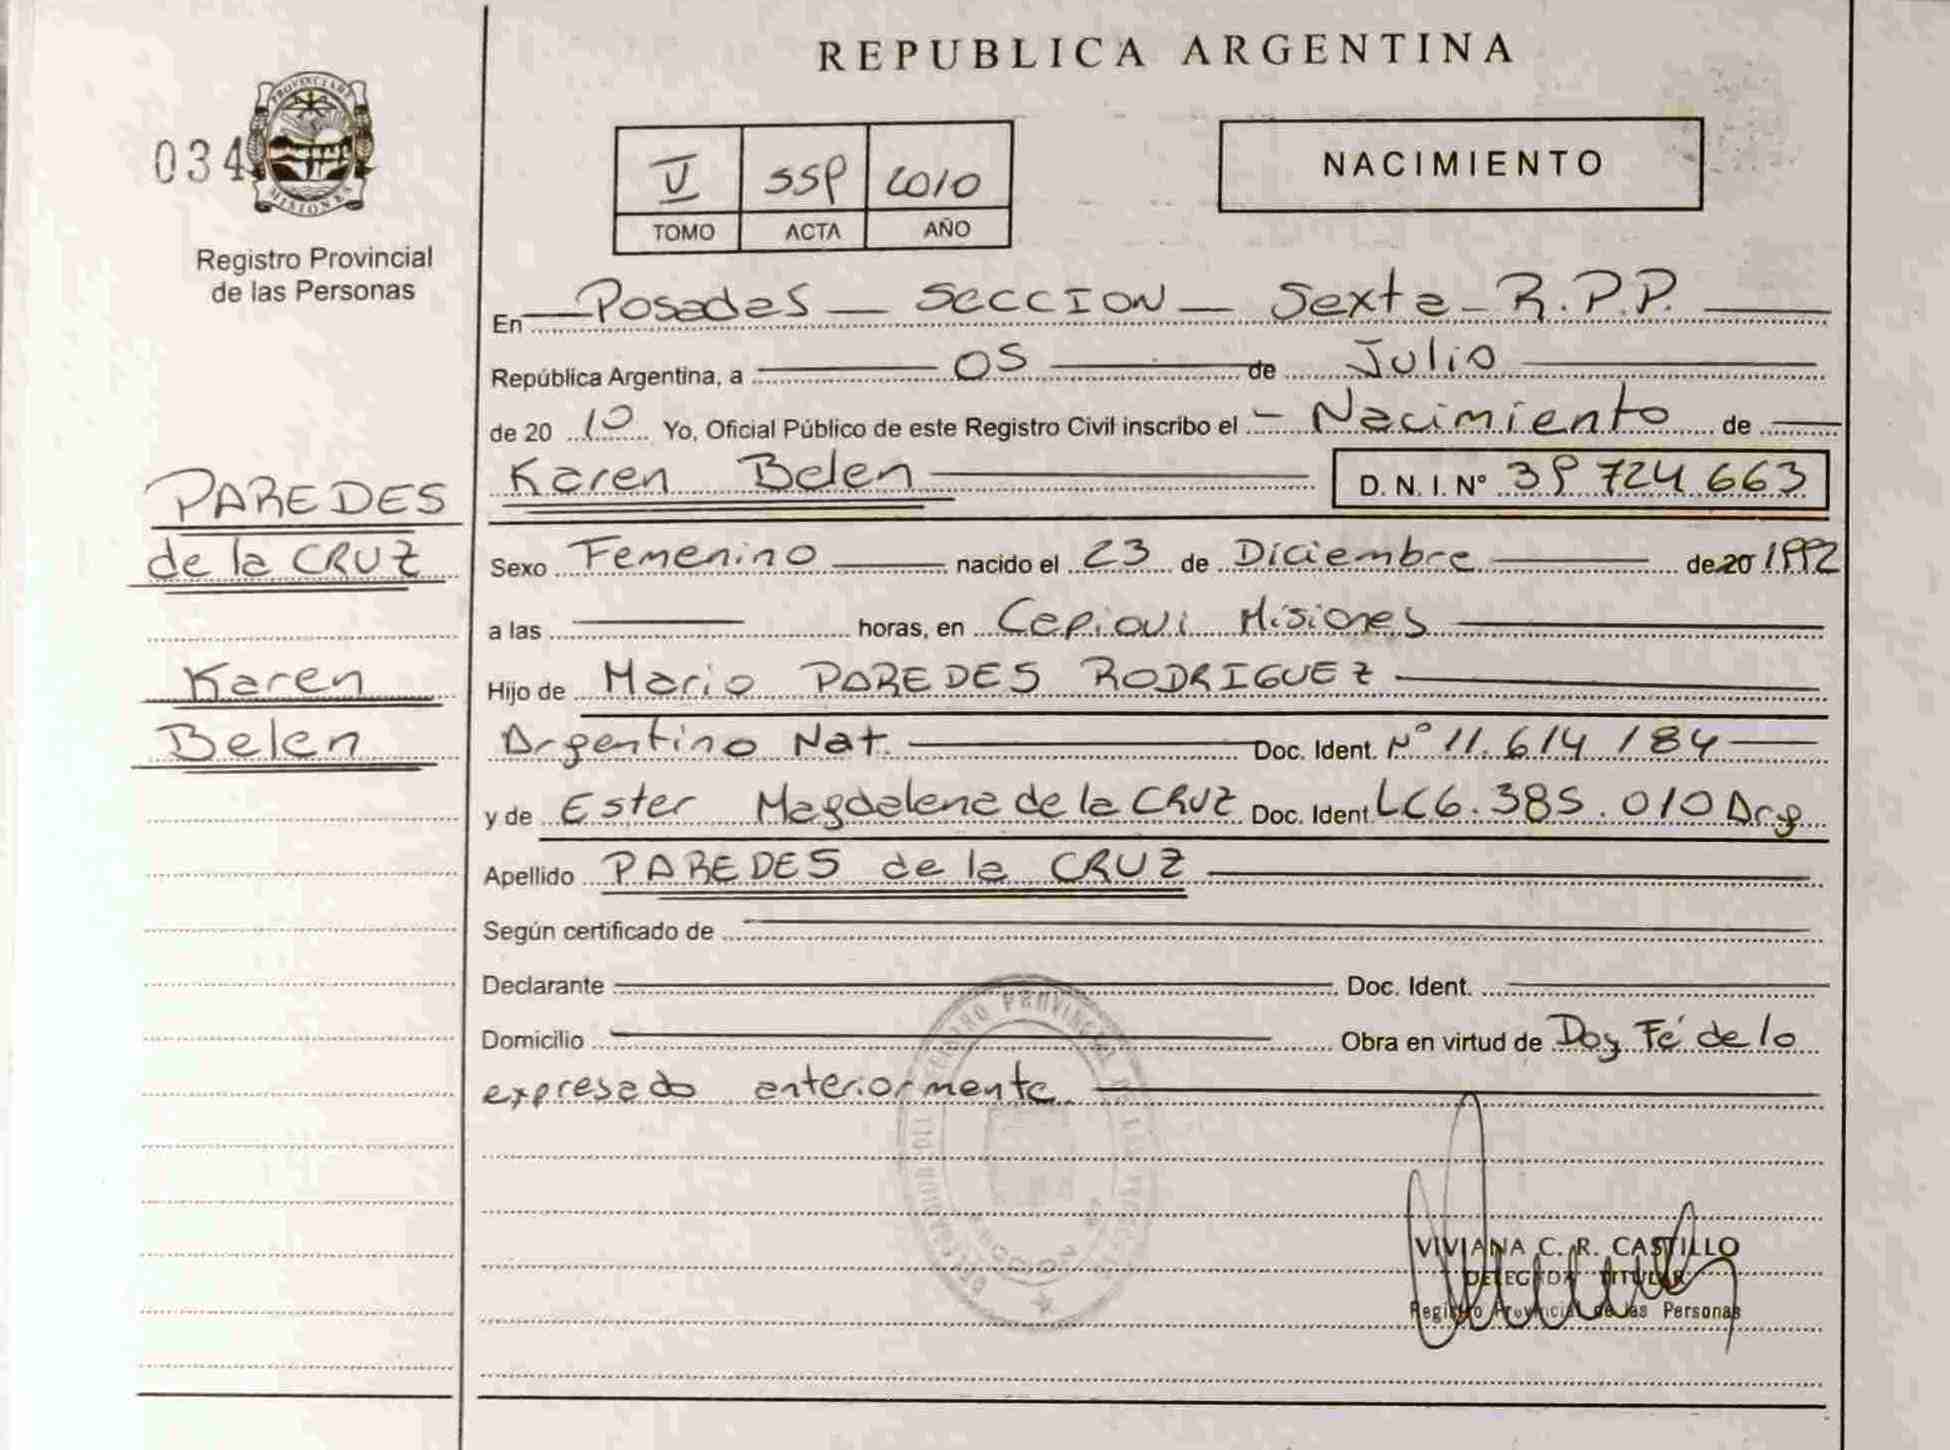 REPUBLICA ARGENTINA
034
PROVINCIA DE
MISIONES
Registro Provincial
de las Personas
V 559 2010
TOMO ACTA AÑO
NACIMIENTO
En Posadas — SECCION — Sexta - R.P.P.
República Argentina, a 05 de Julio
de 20 10 Yo, Oficial Público de este Registro Civil inscribo el - Nacimiento de
Karen Belen D. N. I. N° 39 724 663
PAREDES
de la CRUZ
Karen
Belen
Sexo Femenino nacido el 23 de Diciembre de 20 1992
a las horas, en Capiovi Misiones
Hijo de Mario PAREDES RODRIGUEZ
Argentino Nat. Doc. Ident. N° 11.614 184
y de Ester Magdalena de la CRUZ Doc. Ident LC 6.385.010 Arg
Apellido PAREDES de la CRUZ
Según certificado de
Declarante Doc. Ident.
Domicilio Obra en virtud de Doy Fé de lo
expresado anteriormente
VIVIANA C. R. CASTILLO
DELEGADA TITULAR
Registro Provincial de las Personas